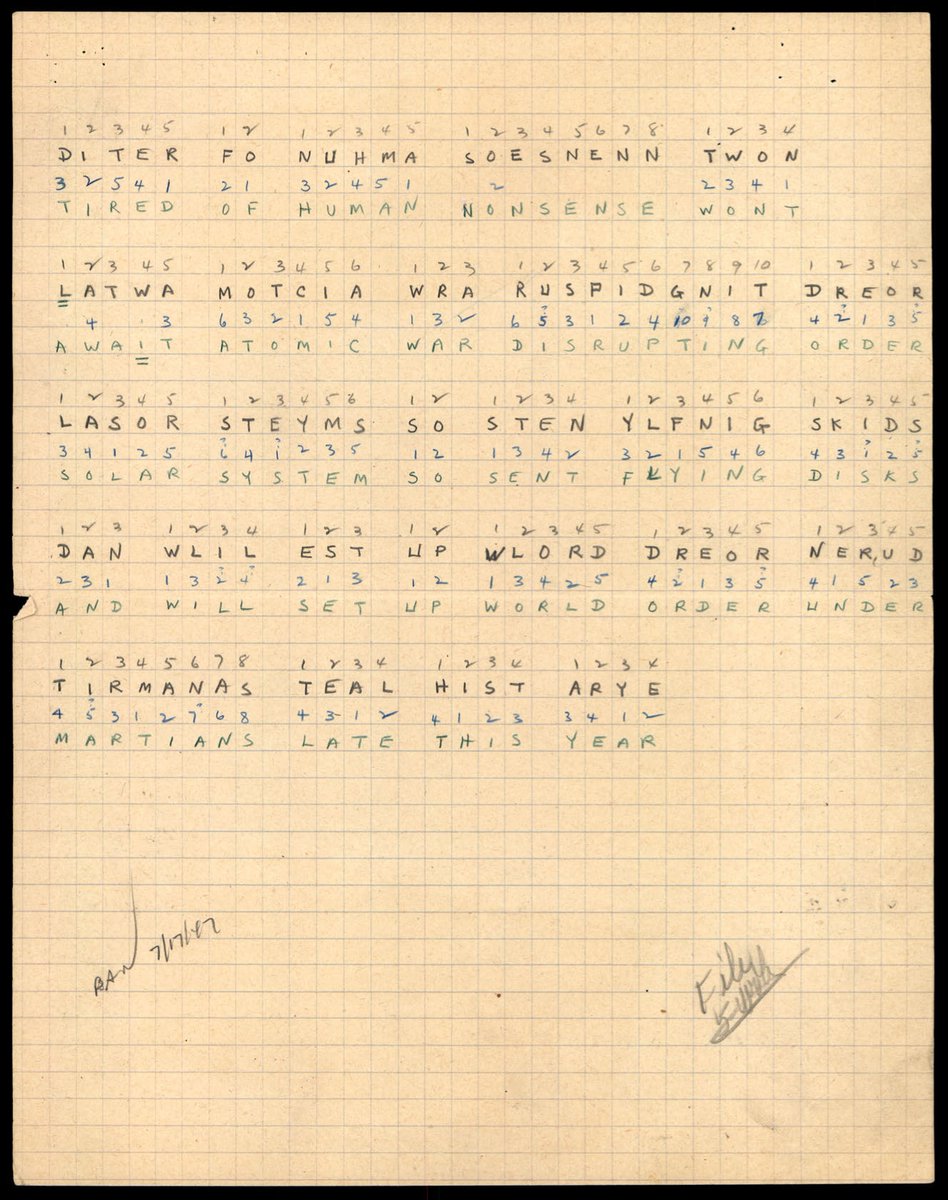 1 2 3 4 5 1 2 1 2 3 4 5 1 2 3 4 5 6 7 8 1 2 3 4
DITER FO NUHMA SOESNENN TWON
3 2 5 4 1 2 1 3 2 4 5 1 2 2 3 4 1
TIRED OF HUMAN NONSENSE WONT
1 2 3 4 5 1 2 3 4 5 6 1 2 3 1 2 3 4 5 6 7 8 9 10 1 2 3 4 5
LATWA MOTCIA WRA RUSPIDGNIT DREOR
4 3 6 3 2 1 5 4 1 3 2 6 5? 3 1 2 4 10 9? 8 7 4 2? 1 3 5?
AWAIT ATOMIC WAR DISRUPTING ORDER
1 2 3 4 5 1 2 3 4 5 6 1 2 1 2 3 4 1 2 3 4 5 6 1 2 3 4 5
LASOR STEYMS SO STEN YLFNIG SKIDS
3 4 1 2 5 6? 4 1? 2 3 5 1 2 1 3 4 2 3 2 1 5 4 6 4 3 1? 2 5?
SOLAR SYSTEM SO SENT FLYING DISKS
1 2 3 1 2 3 4 1 2 3 1 2 1 2 3 4 5 1 2 3 4 5 1 2 3 4 5
DAN WLIL EST UP WLORD DREOR NERUD
2 3 1 1 3 2? 4? 2 1 3 1 2 1 3 4 2 5 4 2? 1 3 5? 4 1 5 2 3
AND WILL SET UP WORLD ORDER UNDER
1 2 3 4 5 6 7 8 1 2 3 4 1 2 3 4 1 2 3 4
TIRMANAS TEAL HIST ARYE
4 5? 3 1 2 7? 6 8 4 3 1 2 4 1 2 3 3 4 1 2
MARTIANS LATE THIS YEAR
BAN 7/17/47
File